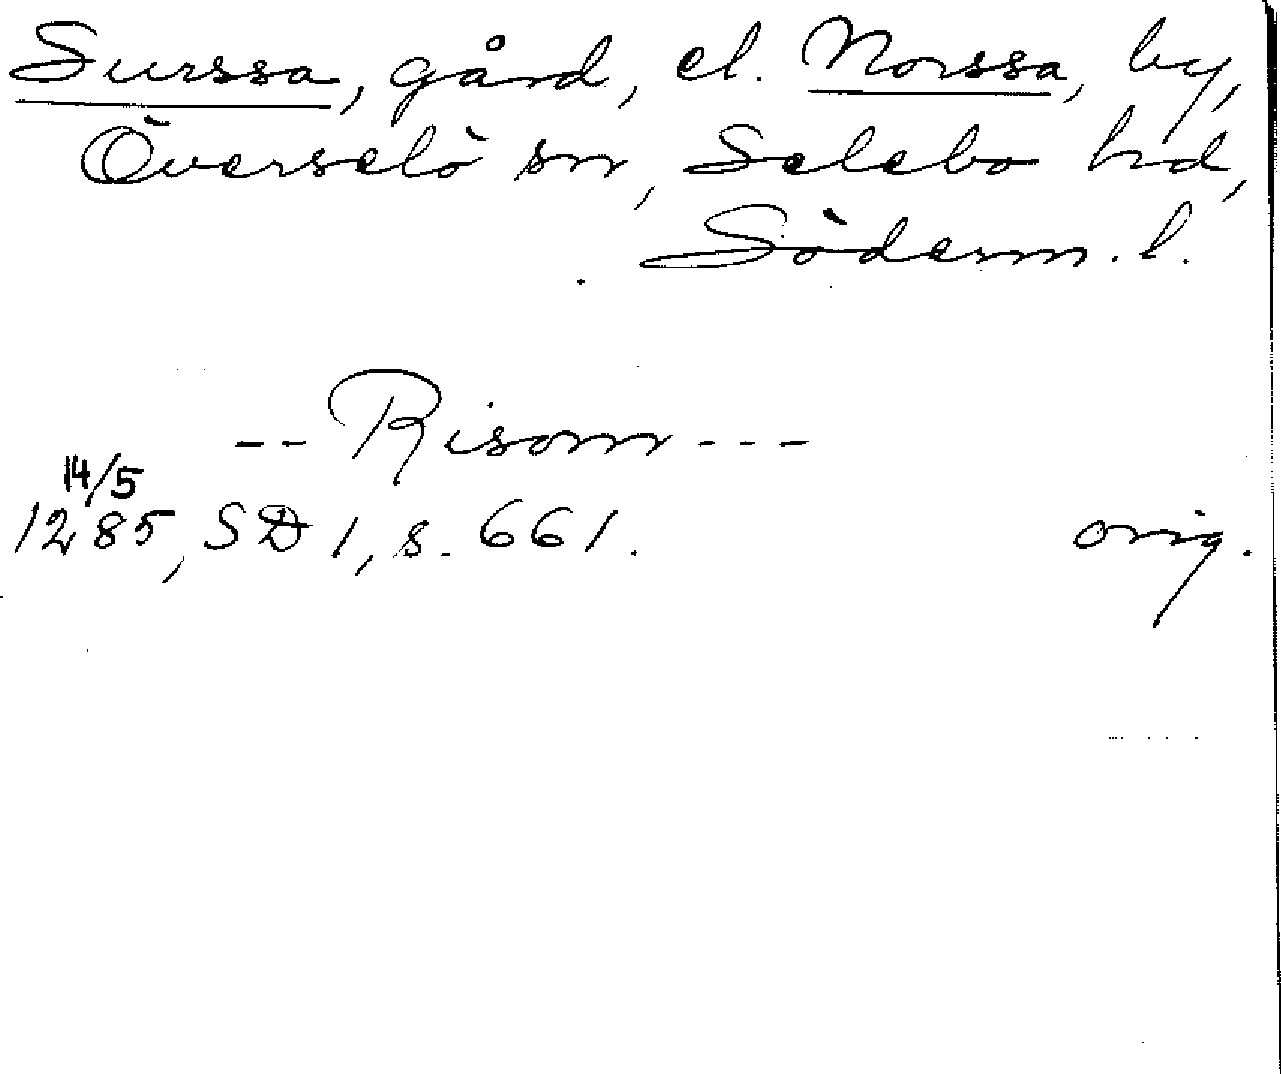 Surssa, gård, el. Norssa, by,
Överselö sn, Selebo hd,
Söderm. l.
-- Risom ---
14/5
1285, SD 1, s. 661. orig.